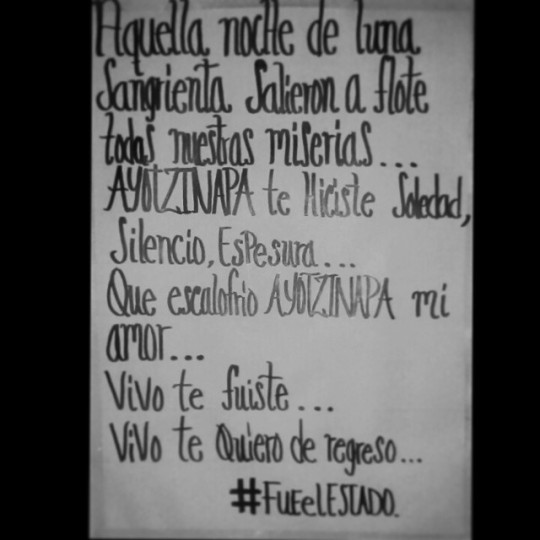 Aquella noche de luna
Sangrienta Salieron a flote
todas nuestras miserias...
AYOTZINAPA te Hiciste Soledad,
Silencio, Espesura...
Que escalofrio AYOTZINAPA mi
amor...
ViVo te fuiste...
ViVo te Quiero de regreso...
#FuEelESTADO.